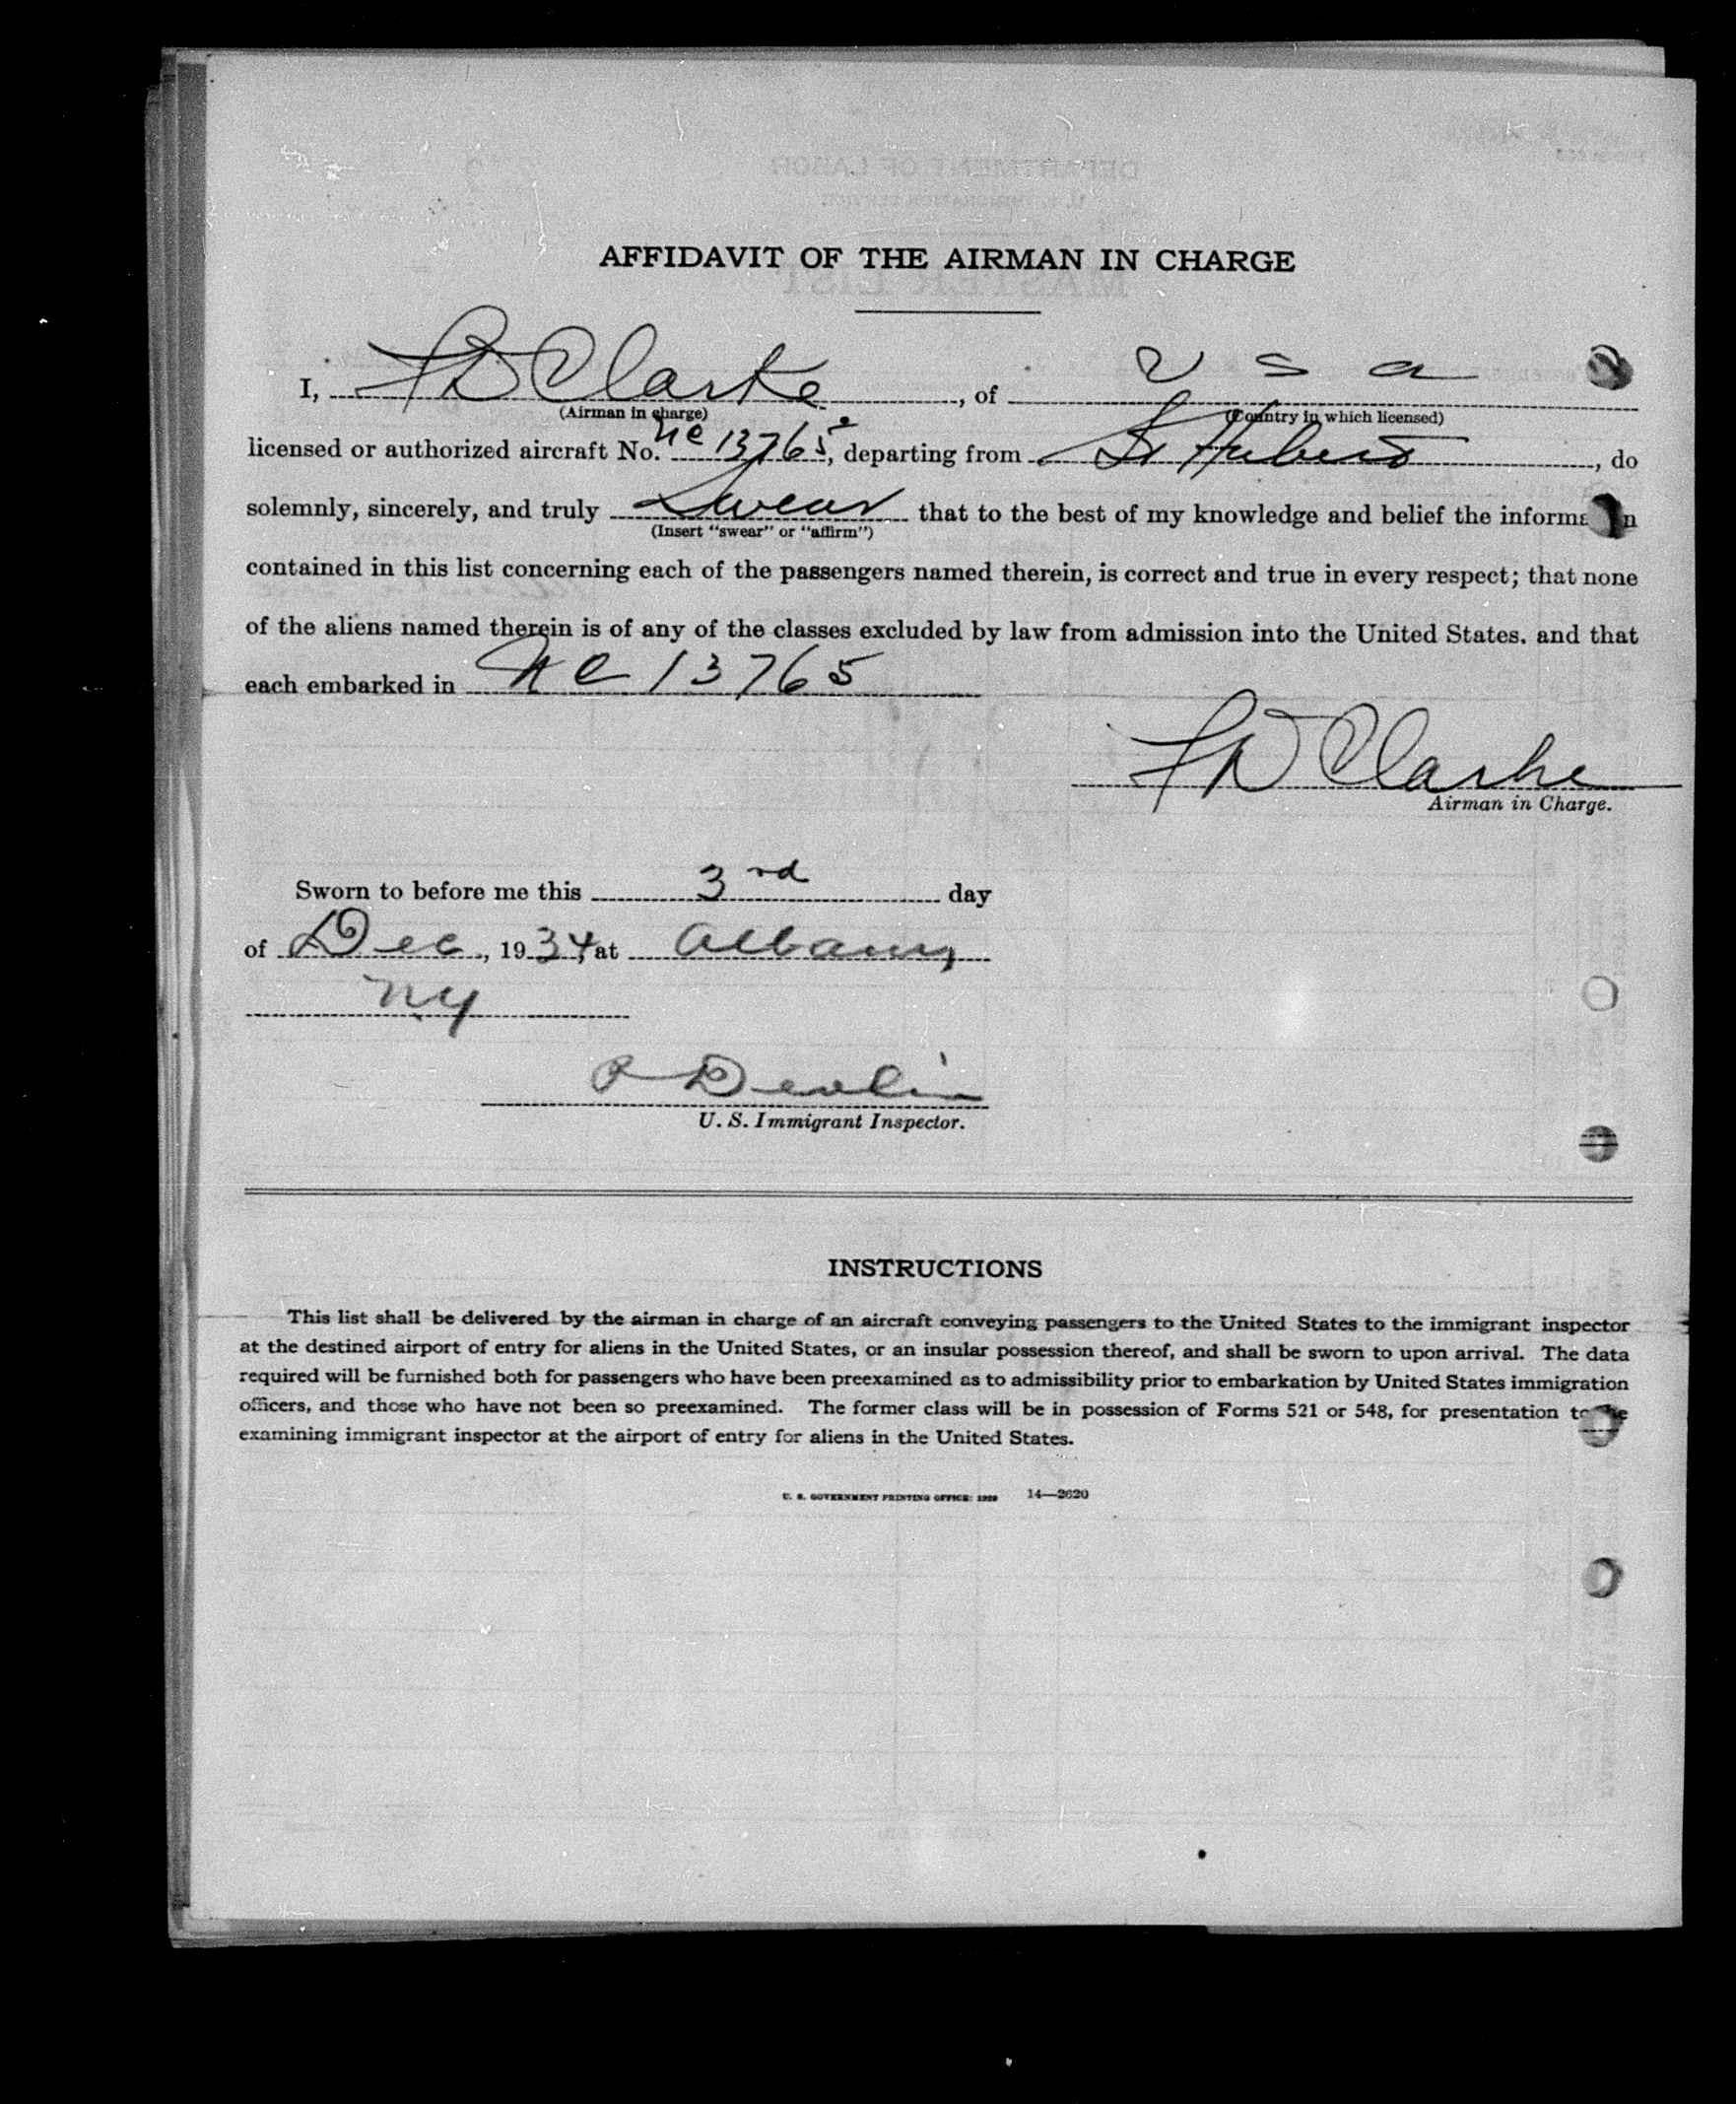 AFFIDAVIT OF THE AIRMAN IN CHARGE
I, F D Clarke, of U S a
(Airman in charge) (Country in which licensed)
licensed or authorized aircraft No. nc 13765, departing from St Hubert, do
solemnly, sincerely, and truly Swear that to the best of my knowledge and belief the informa n
(Insert "swear" or "affirm")
contained in this list concerning each of the passengers named therein, is correct and true in every respect; that none
of the aliens named therein is of any of the classes excluded by law from admission into the United States, and that
each embarked in nc 13765
F D Clarke
Airman in Charge.
Sworn to before me this 3rd day
of Dec, 1934, at Albany
NY
P Devlin
U. S. Immigrant Inspector.
INSTRUCTIONS
This list shall be delivered by the airman in charge of an aircraft conveying passengers to the United States to the immigrant inspector
at the destined airport of entry for aliens in the United States, or an insular possession thereof, and shall be sworn to upon arrival. The data
required will be furnished both for passengers who have been preexamined as to admissibility prior to embarkation by United States immigration
officers, and those who have not been so preexamined. The former class will be in possession of Forms 521 or 548, for presentation to the
examining immigrant inspector at the airport of entry for aliens in the United States.
U. S. GOVERNMENT PRINTING OFFICE: 1929 14—2620